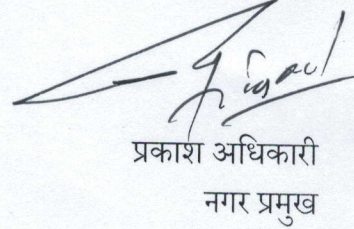 प्रकाश अधिकारी
नगर प्रमुख